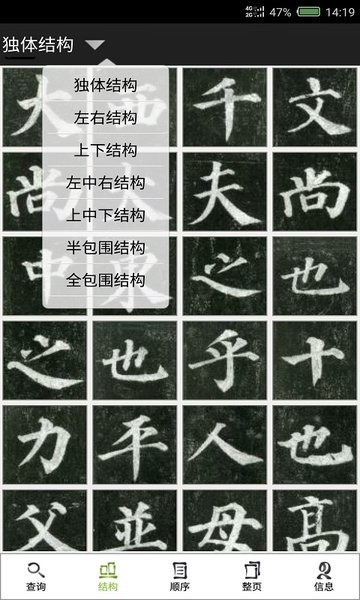 4G 2G 47% 14:19
独体结构
独体结构
左右结构
上下结构
左中右结构
上中下结构
半包围结构
全包围结构
大 西 千 文
尚 夫 尚
中 之 也
之 也 乎 十
力 平 人 也
父 並 母 高
查询 结构 顺序 整页 信息